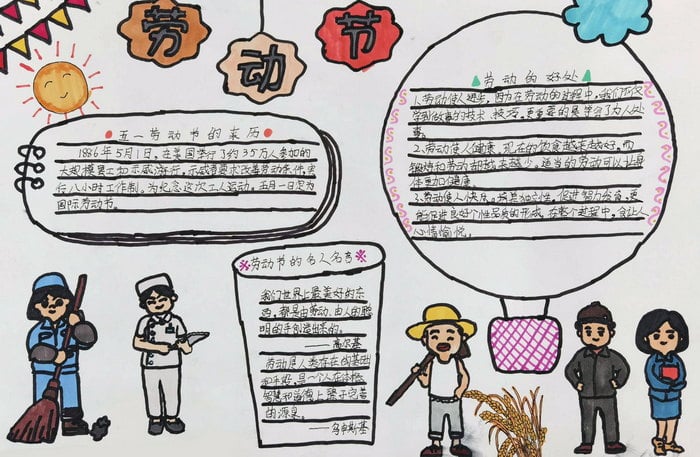 劳动节
五一劳动节的来历
1886年5月1日，在美国举行了约35万人参加的
大规模罢工和示威游行，示威者要求改善劳动条件，实
行八小时工作制。为纪念这次工人运动，五月一日定为
国际劳动节。
劳动的好处
1.劳动使人进步，因为在劳动的过程中，我们不仅
学到做事的技术、技巧，更重要的是学会了为人处
事。
2.劳动使人健康，现在的饮食越来越好，而
锻炼和劳动却越来越少。适当的劳动可以让身
体更加健康。
3.劳动使人快乐，培养独立性，促进智力发育，更
能促进良好个性品质的形成，在整个过程中，会让人
心情愉悦。
劳动节的名人名言
我们世界上最美好的东
西，都是由劳动、由人的聪
明的手创造出来的。
——高尔基
劳动是人类存在的基础
和手段，是一个人在体格、
智慧和道德上臻于完善
的源泉。
——乌申斯基